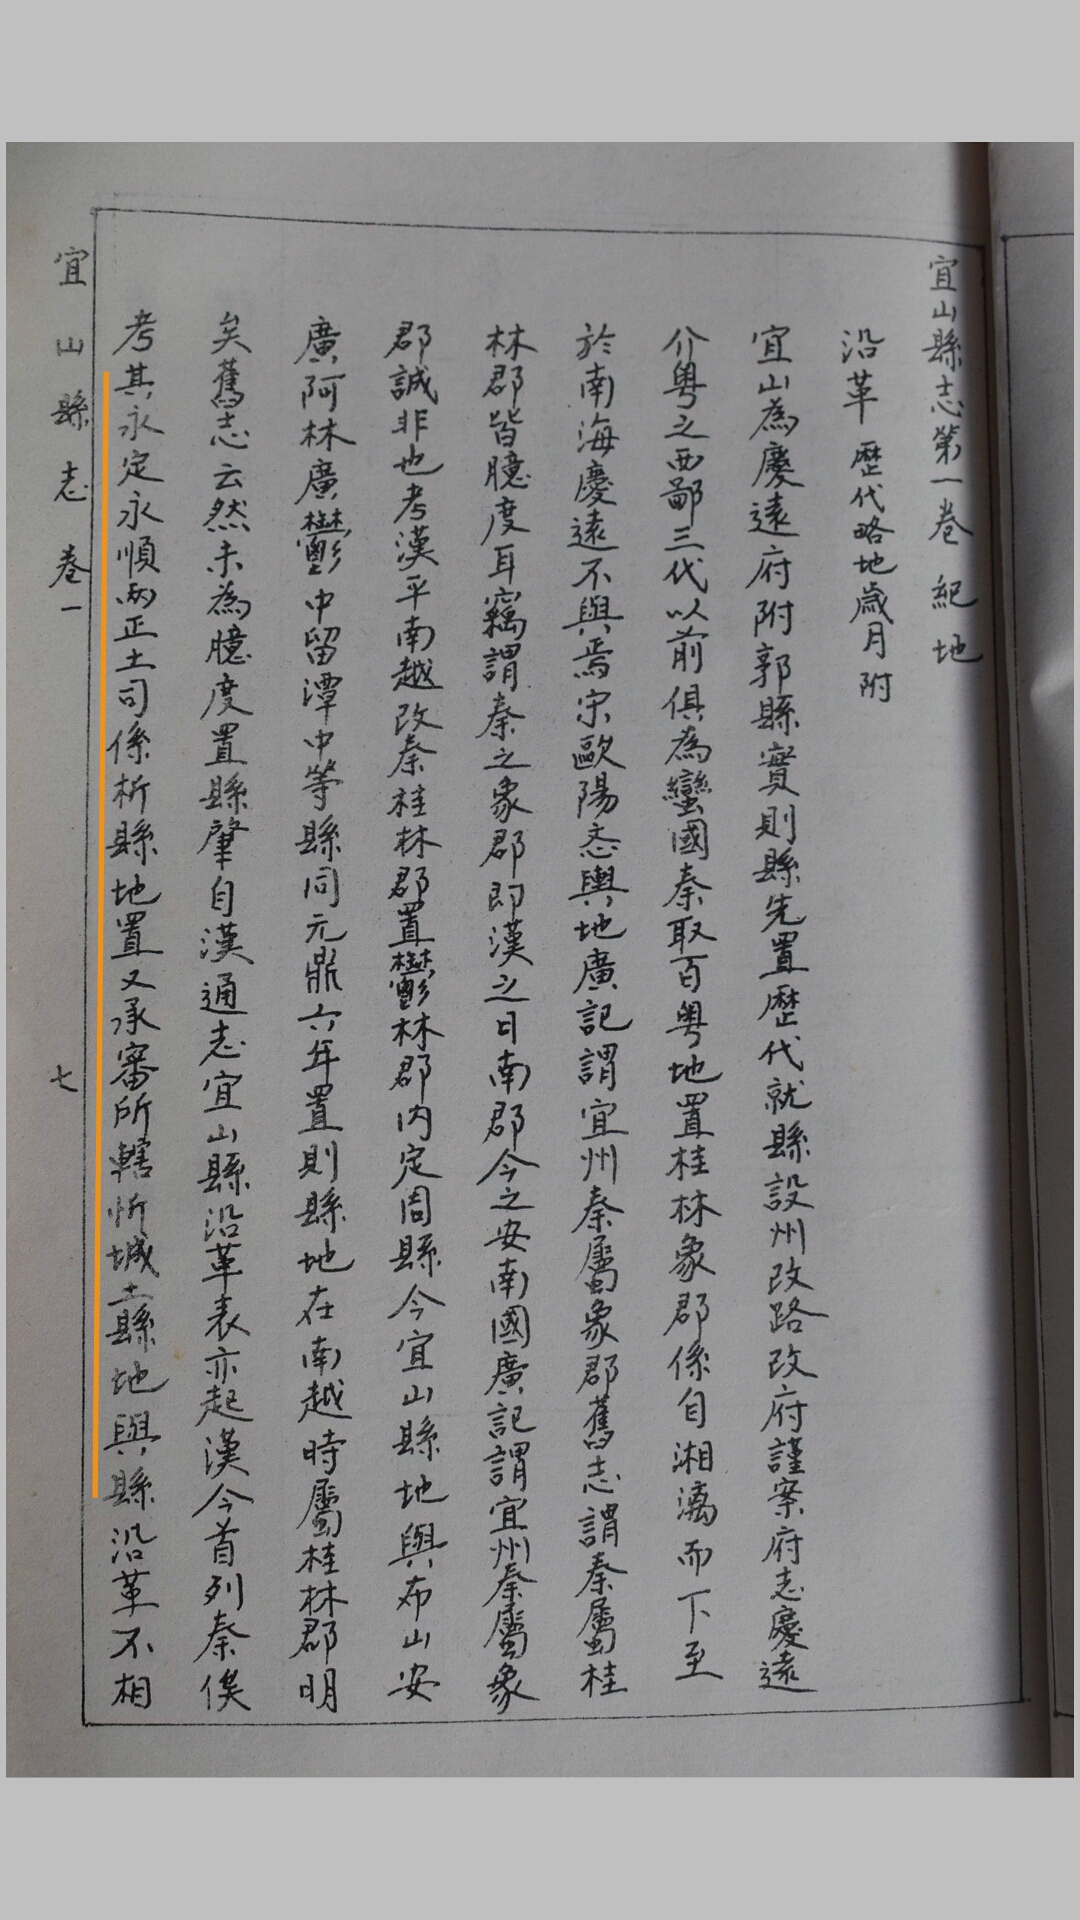 宜山縣志第一卷 紀地
沿革 歷代略地歲月附
宜山為慶遠府附郭縣實則縣先置歷代就縣設州改路改府謹案府志慶遠
介粤之西鄙三代以前俱為蠻國秦取百粤地置桂林象郡係自湘漓而下至
於南海慶遠不與焉宋歐陽忞輿地廣記謂宜州秦屬象郡舊志謂秦屬桂
林郡皆臆度耳竊謂秦之象郡即漢之日南郡今之安南國廣記謂宜州秦屬象
郡誠非也考漢平南越改秦桂林郡置鬱林郡内定周縣今宜山縣地與布山安
廣阿林廣鬱中留潭中等縣同元鼎六年置則縣地在南越時屬桂林郡明
矣舊志云然未為臆度置縣肇自漢通志宜山縣沿革表亦起漢今首列秦俟
考其永定永順兩正土司係析縣地置又承審所轄忻城土縣地與縣沿革不相
宜山縣志 卷一 七